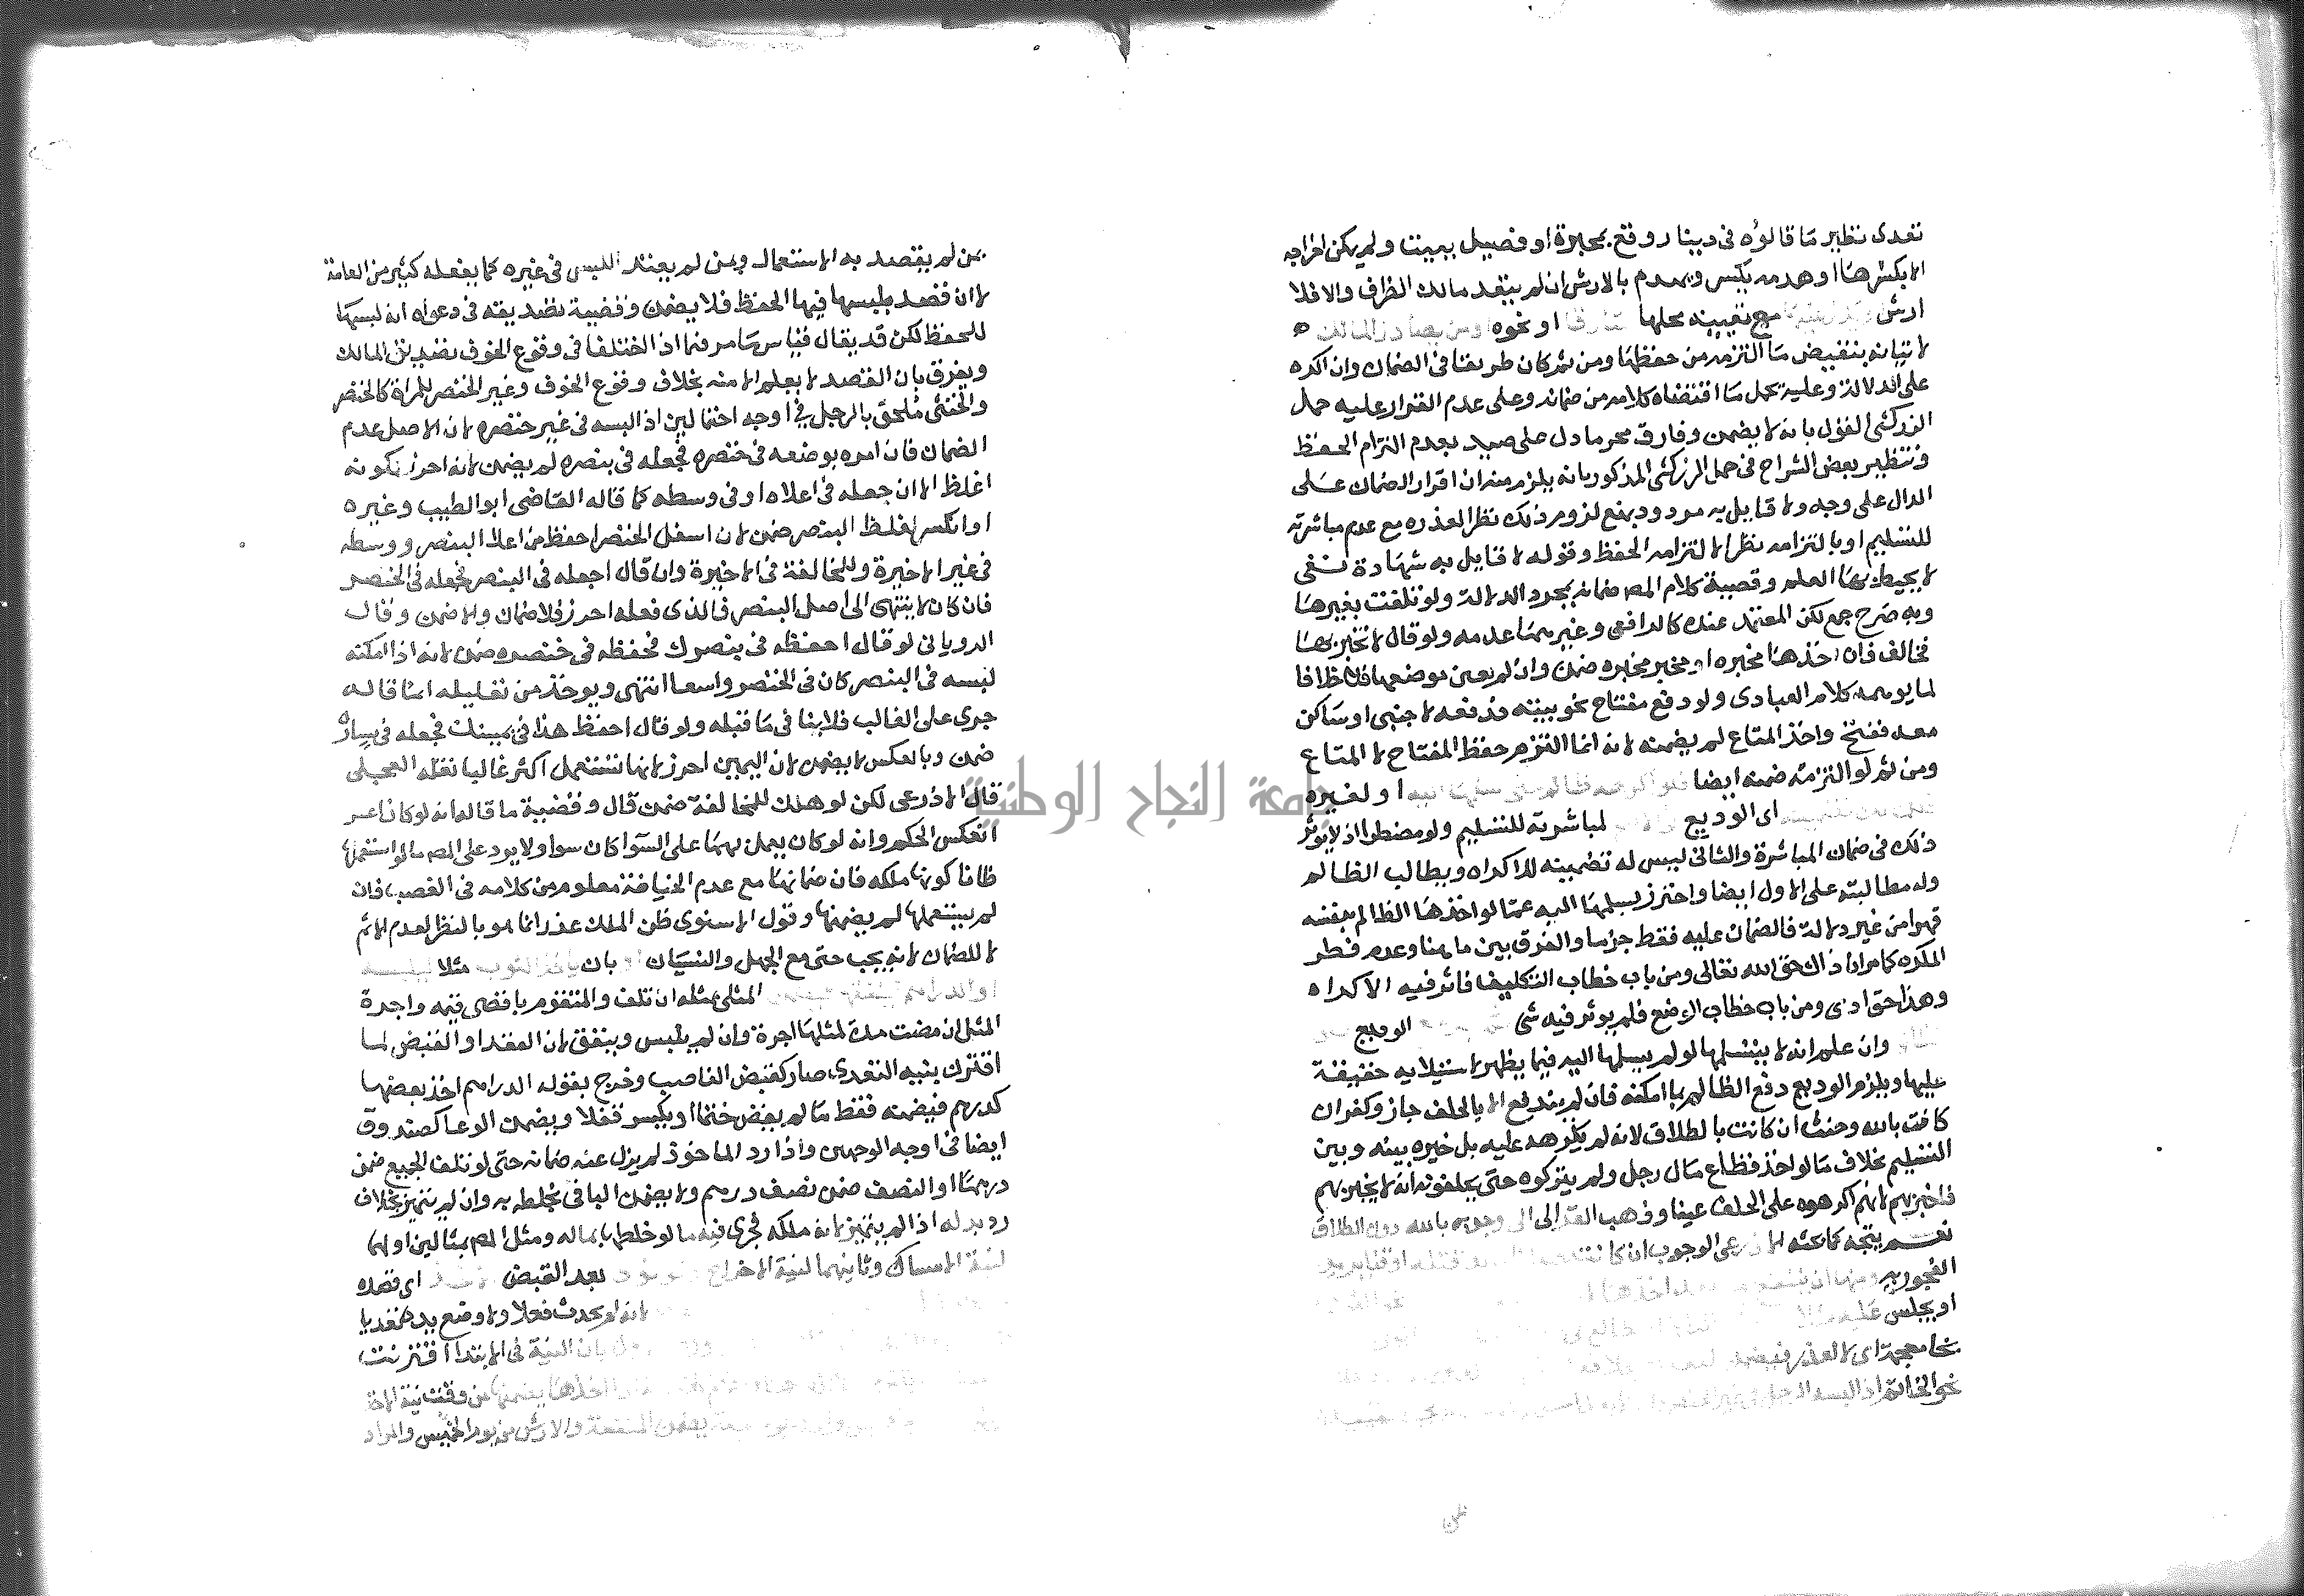 تعدى نظير ما قالوه فى دينار وقع بمحبرة او فصيل ببيت ولم يكن اخراجه
الا بكسرها او هدمه يكسر ويهدم بالارش ان لم يتعد مالك الظرف والا فلا
ارش مع تعيينه محلها او نحوه او من يصادر المالك
لاتيانه بنقيض ما التزمه من حفظها ومن ثم كان طريقا فى الضمان وان اكره
على الدلالة وعليه يحمل ما اقتضاه كلامه من ضمانه وعلى عدم القرار عليه حمل
الزركشى القول بانه لا يضمن وفارق محرما دل على صيد بعدم التزام الحفظ
وتنظير بعض الشراح فى حمل الزركشى المذكور بانه يلزم منه ان اقرار الضمان على
الدال على وجه ولا قايل به مردود بمنع لزوم ذلك نظر العذره مع عدم مباشرته
للتسليم او بالتزامه نظرا لالتزامه الحفظ وقوله لا قايل به شهادة نفى
لا يحيط بها العلم وقضية كلام المص ضمانه بمجرد الدلالة ولو تلفت بغيرها
وبه صرح جمع لكن المعتمد عنده كالرافعى وغيرهما عدمه ولو قال لا تخبر بها
فخالف فان اخذها مخبره او مخبر مخبره ضمن وان لم يعين موضعها خلافا
لما يوهمه كلام العبادى ولو دفع مفتاح نحو بيته فدفعه لاجنبى او ساكن
معه ففتح واخذ المتاع لم يضمنه لانه انما التزم حفظ المفتاح لا المتاع
ومن ثم لو التزمه ضمنه ايضا فلو اكرهه ظالم حتى سلمها اليه او لغيره
اى الوديع لمباشرته للتسليم ولو مضطرا اذ لا يوثر
ذلك فى ضمان المباشرة والثانى ليس له تضمينه للاكراه ويطالب الظالم
وله مطالبته على الاول ايضا واحترز بسلمها اليه عما لو اخذها الظالم بنفسه
قهرا من غير دلالة فالضمان عليه فقط جزما والفرق بين ما هنا وعدم فطر
المكره كما مر ان ذاك حق الله تعالى ومن باب خطاب التكليف فاثر فيه الاكراه
وهذا حق ادمى ومن باب خطاب الوضع فلم يوثر فيه شى الوديع
وان علم انه لا يتسلمها لو لم يسلمها اليه فيما يظهر لاستيلايه حقيقة
عليها ويلزم الوديع دفع الظالم بما امكنه فان لم يندفع الا بالحلف جاز وكفر ان
كانت بالله وحنث ان كانت بالطلاق لانه لم يكرهه عليه بل خيره بينه وبين
التسليم بخلاف ما لو اخذ قطاع مال رجل ولم يتركوه حتى يحلفوه انه لا يخبر بهم
فاخبر بهم لانهم اكرهوه على الحلف عينا وذهب الغزالى الى وجوبه بالله دون الطلاق
نعم يتجه كما بحثه الاذرعى الوجوب ان كانت
الفجور به ومنها ان ينتفع
او يجلس عليه مثلا
بخا معجمة اى لا لعذر فيضمن
نحو الخاتم اذا لبسه الرجل فى غير
بمن لم يقصد به الاستعمال وبمن لم يعتد اللبس فى غيره كما يفعله كثير من العامة
لا ان قصد بلبسها فيها الحفظ فلا يضمن وقضية تصديقه فى دعواه انه لبسها
للحفظ لكن قد يقال قياس ما مر فيما اذا اختلفا فى وقوع الخوف تصديق المالك
ويفرق بان القصد لا يعلم الا منه بخلاف وقوع الخوف وغير الخنصر للمراة كالخنصر
والخنثى ملحق بالرجل فى اوجه احتمالين اذا لبسه فى غير خنصره لان الاصل عدم
الضمان فان امره بوضعه فى خنصره فجعله فى بنصره لم يضمن لانه احرز لكونه
اغلظ الا ان جعله فى اعلاه او فى وسطه كما قاله القاضى ابو الطيب وغيره
او انكسر لغلظ البنصر ضمن لان اسفل الخنصر احفظ من اعلا البنصر ووسطه
فى غير الاخيرة وللمخالفة فى الاخيرة وان قال اجعله فى البنصر فجعله فى الخنصر
فان كان لا ينتهى الى اصل البنصر فالذى فعله احرز فلا ضمان والا ضمن وقال
الرويانى لو قال احفظه فى بنصرك فحفظه فى خنصره ضمن لانه اذا امكنه
لبسه فى البنصر كان فى الخنصر واسعا انتهى ويوخذ من تعليله انما قاله
جرى على الغالب فلا ينافى ما قبله ولو قال احفظ هذا فى يمينك فجعله فى يساره
ضمن وبالعكس لا يضمن لان اليمين احرز لانها تستعمل اكثر غالبا نقله العجلى
قال الاذرعى لكن لو هلك للمخالفة ضمن قال وقضية ما قاله انه لو كان اعسر
انعكس الحكم وانه لو كان يعمل بهما على السوا كان سوا ولا يرد على المص ما لو استعملها
ظانا كونها ملكه فان ضمانها مع عدم الخيانة معلوم من كلامه فى الغصب فان
لم يستعملها لم يضمنها وقول الاسنوى ظن الملك عذر انما هو بالنظر لعدم الاثم
لا للضمان لانه يجب حتى مع الجهل والنسيان بان ياخذ الثوب مثلا ليلبسه
او الدراهم لينفقها فيضمن المثلى بمثله ان تلف والمتقوم باقصى قيمه واجرة
المثل ان مضت مدة لمثلها اجرة وان لم يلبس وينفق لان العقد او القبض لما
اقترن بنية التعدى صار كقبض الغاصب وخرج بقوله الدراهم اخذ بعضها
كدرهم فيضمنه فقط ما لم يفض ختما او يكسر قفلا ويضمن الوعا كصندوق
ايضا فى اوجه الوجهين واذا رد الماخوذ لم يزل عنه ضمانه حتى لو تلف الجميع ضمن
درهما او النصف ضمن نصف درهم ولا يضمن الباقى بخلطه به وان لم تتميز بخلاف
رد بدله اذا لم يتميز لانه ملكه فجرى فيه ما لو خلطها بماله ومثل المص بمثالين اولهما
لنية الامساك وثانيهما لنية الاخراج بعد القبض اى قصده
لانه لم يحدث فعلا ولا وضع يد تعديا
بان النية فى الابتدا اقترنت
اخذها يضمنها من وقت نية الاخذ
يضمن المنفعة والارش من يوم الخميس والمراد